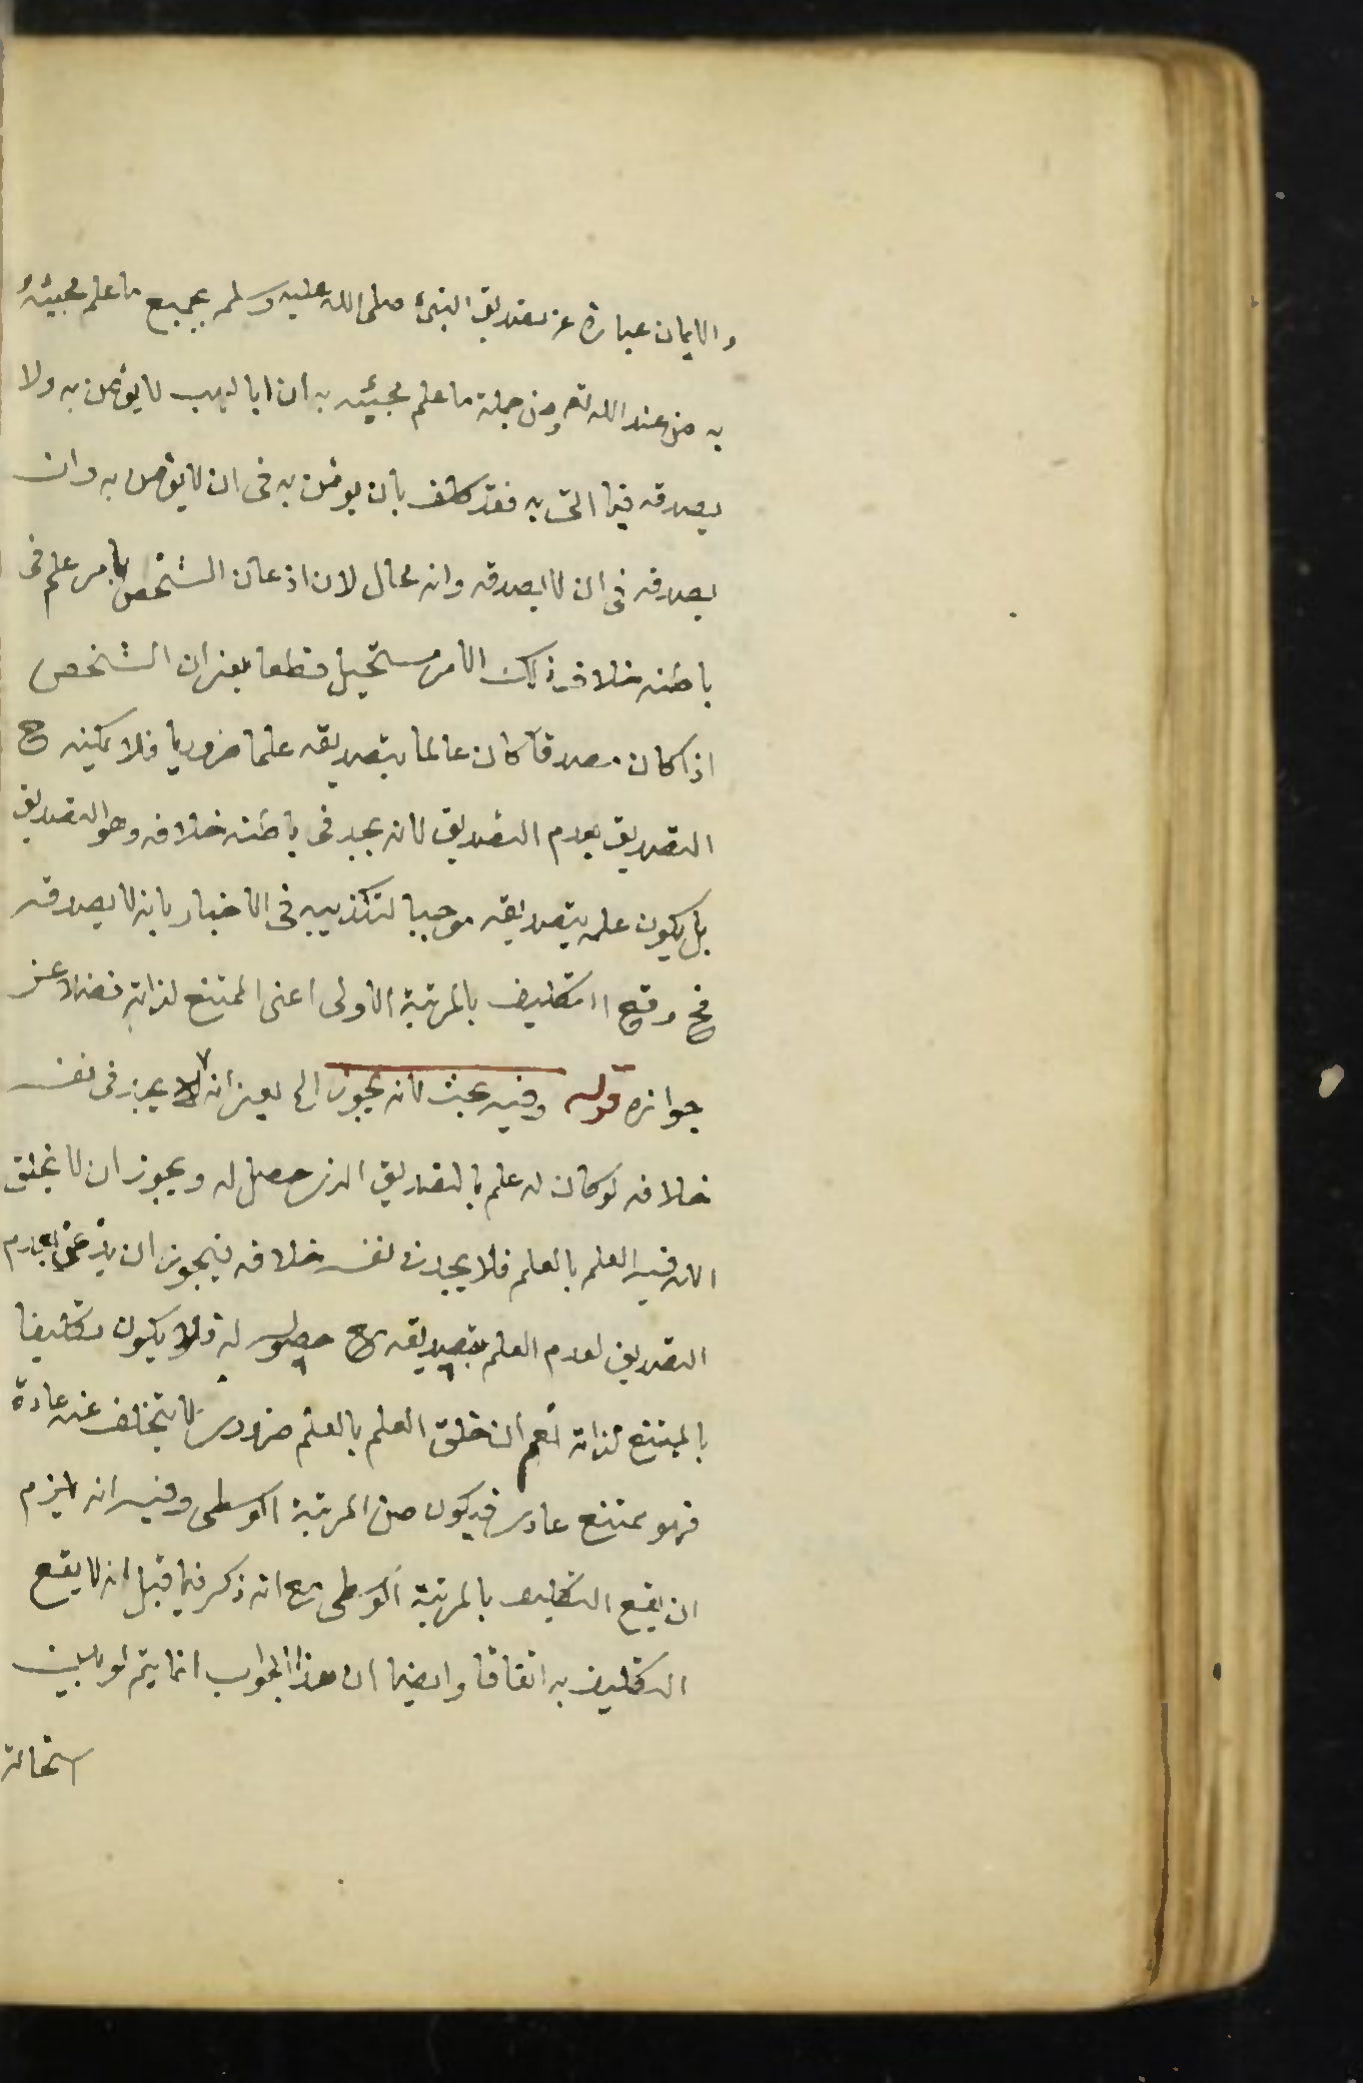 والايمان عبارة عن تصديق النبئ صلى الله عليه وسلم بجميع ما علم مجيئه
به من عند الله تع ومن جملة ما علم مجيئه به ان ابا لهب لا يؤمن به ولا
يصدقه فيما اتى به فقد كلف بان يومن به فى ان لا يؤمن به وان
يصدقه فى ان لا يصدقه وانه محال لان اذعان الشخص بامر علم فى
باطنه خلاف ذلك الامر مستحيل قطعا يعنى ان الشخص
اذا كان مصدقا كان عالما بتصديقه علما ضروريا فلا يمكنه ح
التصديق بعدم التصديق لانه يجد فى باطنه خلافه وهو التصديق
بل يكون علمه بتصديقه موجبا لتكذيبه فى الاخبار بانه لا يصدقه
فح وقع التكليف بالمرتبة الاولى اعنى الممتنع لذاته فضلا عن
جوازه قوله وفيه بحث لانه يجوز الخ يعنى انه لا يجد فى نفسه
خلافه لو كان له علم بالتصديق الذى حصل له ويجوز ان لا يخلق
الله فيه العلم بالعلم فلا يجد فى نفسه خلافه فيجوز ان يذعن بعدم
التصديق لعدم العلم بتصديقه مع حصوله له فلا يكون تكليفا
بالممتنع لذاته نعم ان خلق العلم بالعلم ضرورى لا يتخلف عنه عادة
فهو ممتنع عادى فيكون من المرتبة الوسطى وفيه انه يلزم
ان يقع التكليف بالمرتبة الوسطى مع انه ذكر فيما قبل انه لا يقع
التكليف به اتفاقا وايضا ان هذا الجواب انما يتم لو بين
استحالة